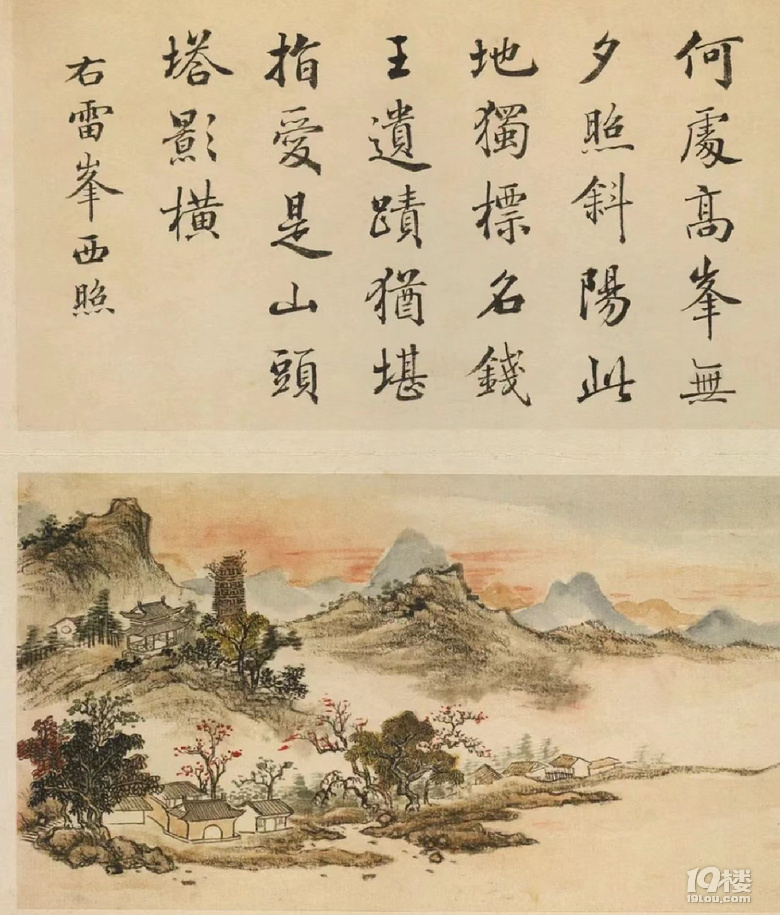 何處高峯無
夕照斜陽此
地獨標名錢
王遺蹟猶堪
指愛是山頭
塔影橫
右雷峯西照
19楼
19lou.com